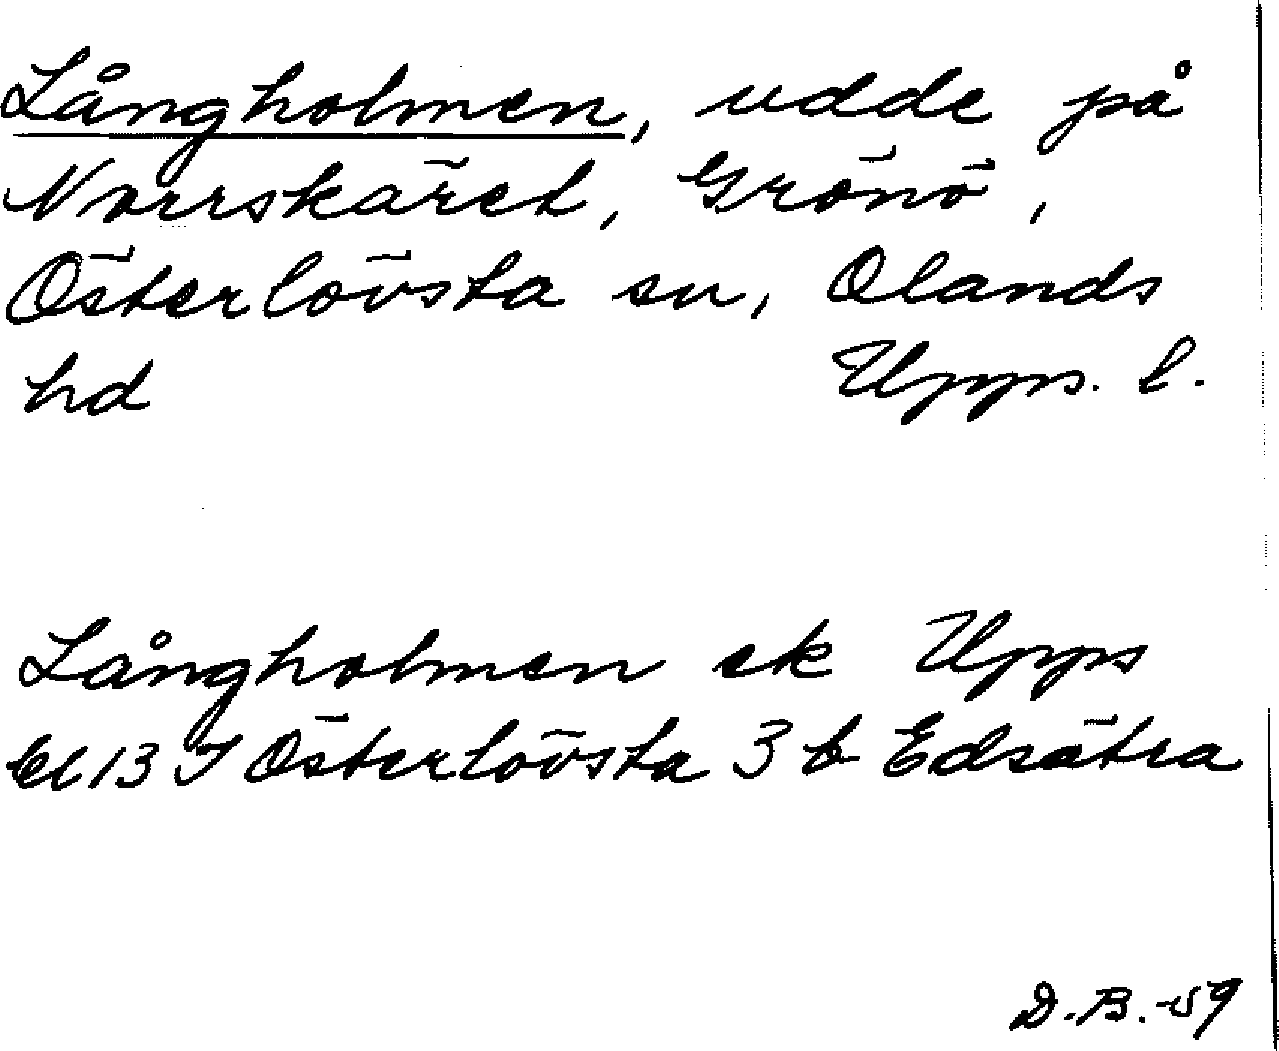 Långholmen, udde på
Norrskäret, Grönö,
Österlövsta sn, Olands
hd Upps. l.
Långholmen ek Upps
13 I Österlövsta 3 b Edsätra
D.B.-59